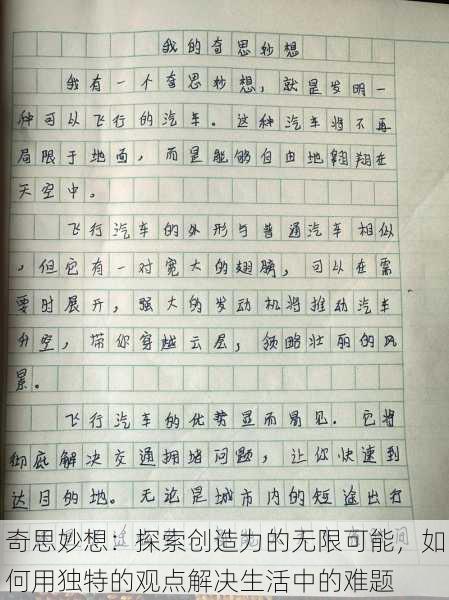 我的奇思妙想
我有一个奇思妙想，就是发明一
种可以飞行的汽车。这种汽车将不再
局限于地面，而是能够自由地翱翔在
天空中。
飞行汽车的外形与普通汽车相似
，但它有一对宽大的翅膀，可以在需
要时展开，强大的发动机将推动汽车
升空，带你穿越云层，领略壮丽的风
景。
飞行汽车的优势显而易见．它将
彻底解决交通拥堵问题，让你快速到
达目的地。无论是城市内的短途出行
间
奇思妙想：探索创造力的无限可能，如
何用独特的观点解决生活中的难题